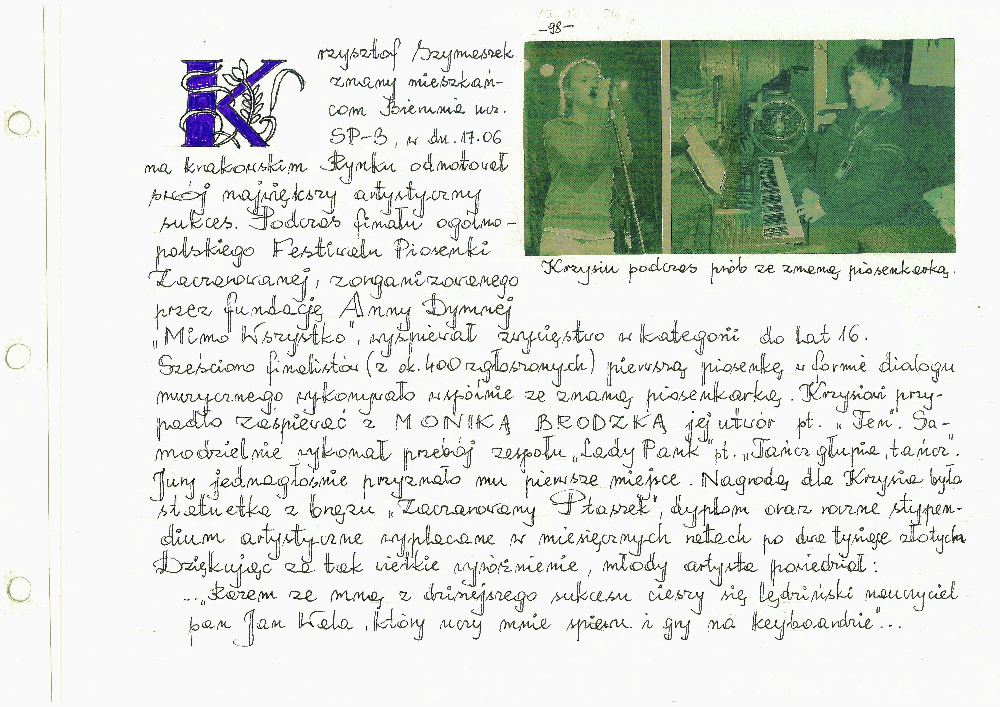 -98-
Krzysztof Szymeczek
znany mieszkań-
com Bierunia ucz.
SP-3, w dn. 17.06
na krakowskim Rynku odnotował
swój największy artystyczny
sukces. Podczas finału ogólno-
polskiego Festiwalu Piosenki
Zaczarowanej, zorganizowanego
przez fundację Anny Dymnej
"Mimo Wszystko", wyśpiewał zwycięstwo w kategorii do lat 16.
Krzysiu podczas prób ze znaną piosenkarką.
Sześciono finalistów (z ok. 400 zgłoszonych) pierwszą piosenkę w formie dialogu
muzycznego wykonywało wspólnie ze znaną piosenkarką. Krzysiowi przy-
padło zaśpiewać z MONIKĄ BRODZKĄ jej utwór pt. "Ten". Sa-
modzielnie wykonał przebój zespołu "Lady Pank" pt. "Tańcz głupia, tańcz".
Jury jednagłośnie przyznało mu pierwsze miejsce. Nagrodą dla Krysia była
statuetka z brązu "Zaczarowany Ptaszek", dyplom oraz roczne stypen-
dium artystyczne wypłacane w miesięcznych ratach po dwa tysiące złotych
Dziękując za tak wielkie wyróżnienie, młody artysta powiedział:
..."Razem ze mną z dzisiejszego sukcesu cieszy się lędziński nauczyciel
pan Jan Wala, który uczy mnie śpiewu i gry na keyboardzie"...